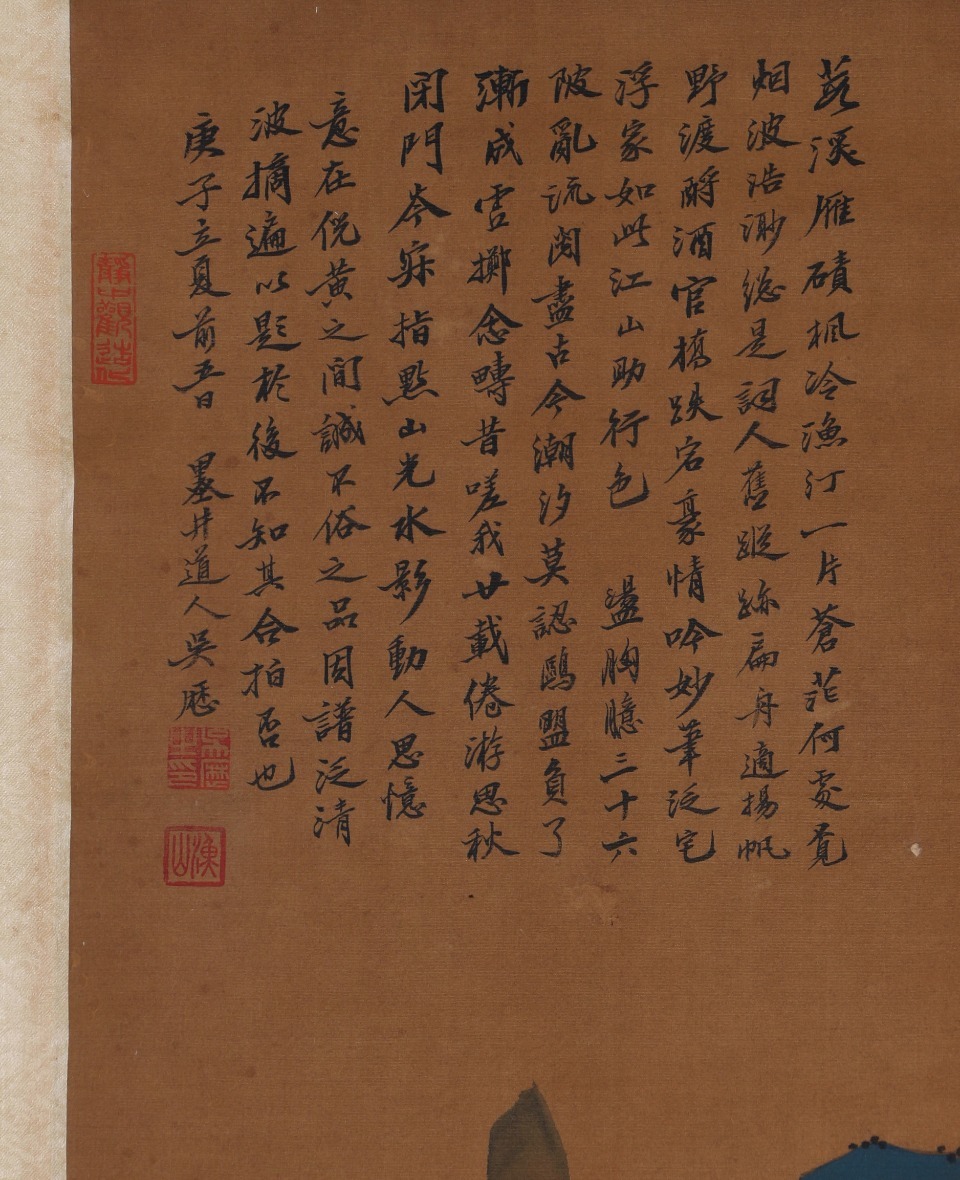 苕溪雁磧楓冷漁汀一片蒼茫何處覓
烟波浩渺總是詞人舊蹤跡扁舟適揚帆
野渡酹酒官橋跌宕豪情吟妙筆泛宅
浮家如此江山助行色 盪胸臆三十六
陂亂流閱盡古今潮汐莫認鷗盟負了
漸成雪擲念疇昔嗟我廿載倦游思秋
閉門岑寂指點山光水影動人思憶
意在倪黃之間誠不俗之品因譜泛清
波摘遍以題於後不知其合拍否也
庚子立夏前五日 墨井道人吳歷
靜中觀造化
漁山